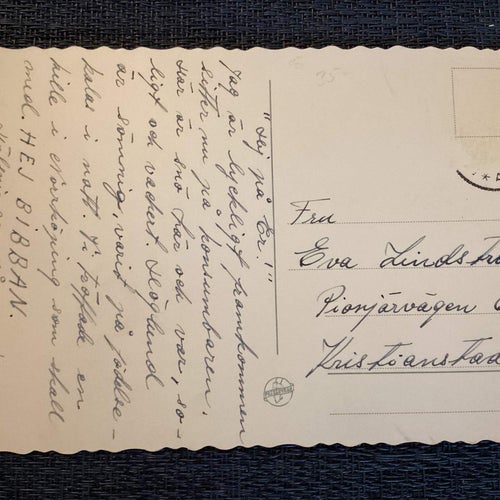 "Hej på Er!"
Jag är lyckligt framkommen
sitter nu på konsumbaren.
Här är snö här och var, so-
ligt och vackert. Höglund
är sömnig, varit på
kalas i natt. Vi träffade en
kille i Norrköping som skall
med. HEJ BIBBAN.
Fru
Eva Lindst
Pionjärvägen
Kristianstad